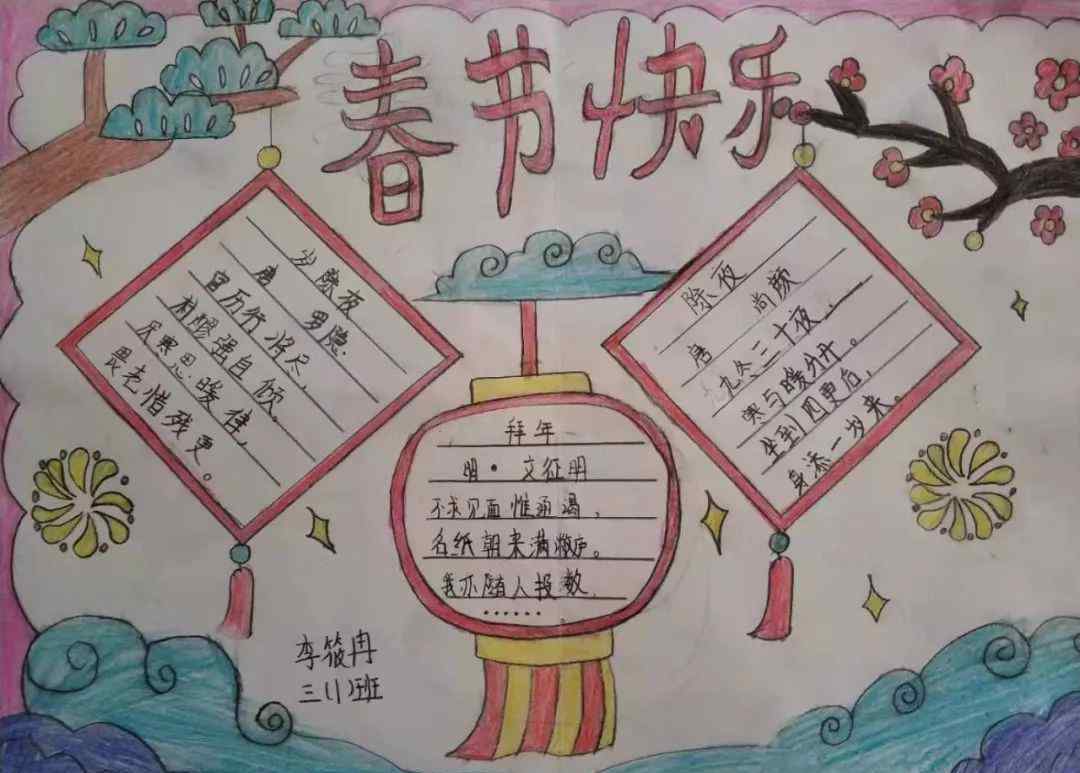 春节快乐
岁除夜
唐 罗隐.
官历行将尽，
村醪强自倾.
厌寒思暖律，
畏老惜残更。
除夜
唐 尚颜
九冬三十夜，
寒与暖分开。
坐到四更后，
身添一岁来。
拜年
明·文征明
不求见面惟通谒，
名纸朝来满敝庐。
我亦随人投数，
······
李筱冉
三(1)班